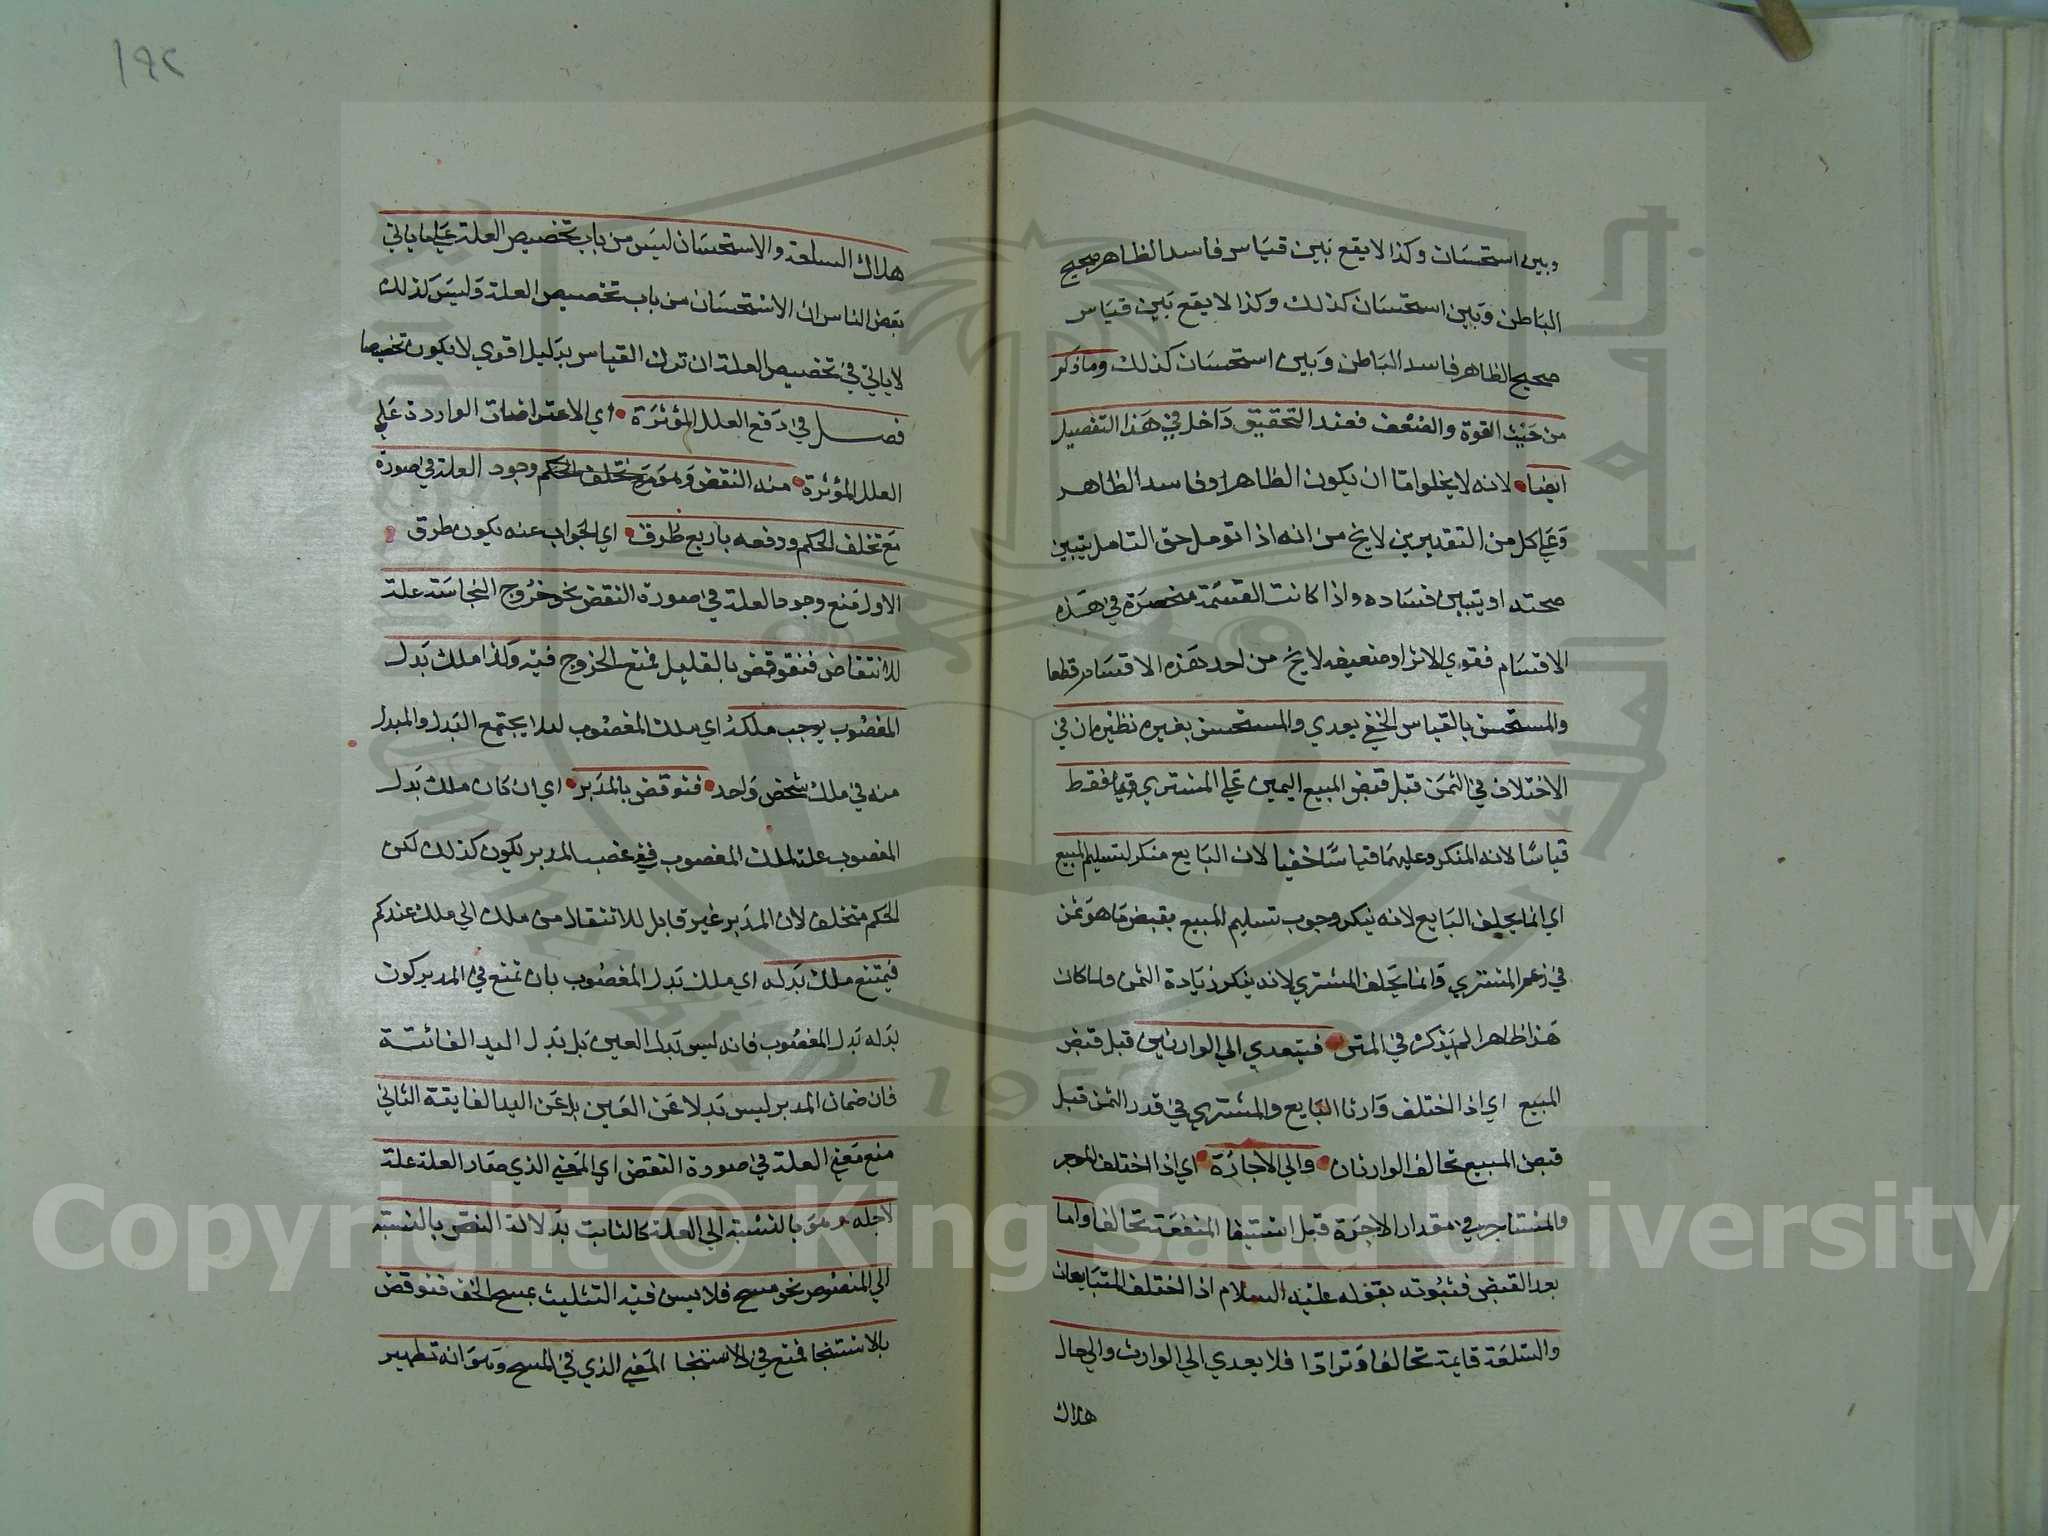 وبين استحسان وكذا لا يقع بين قياس فاسد الظاهر صحيح
الباطن وبين استحسان كذلك وكذا لا يقع بين قياس
صحيح الظاهر فاسد الباطن وبين استحسان كذلك وما ذكر
من حيث القوة والضعف فعند التحقيق داخل في هذا التفصيل
ايضا لانه لا يخلوا اما ان يكون الظاهر او فاسد الظاهر
وعلى كل من التقديرين لا يخ من انه اذا تومل حق التامل يتبين
صحته او يتبين فساده واذا كانت القسمة منحصرة في هذه
الاقسام فقوي الاثر او ضعيفه لا يخ من احد هذه الاقسام قطعا
والمستحسن بالقياس الخفي يعدي والمستحسن بغيره نظيره ان في
الاختلاف في الثمن قبل قبض المبيع اليمين علي المشتري فقط
قياسا لانه المنكر وعليهما قياسا خفيا لان البايع منكر لتسليم المبيع
اي انما يحلف البايع لانه ينكر وجوب تسليم المبيع بقبض ما هو ثمن
في زعم المشتري وانما يحلف المشتري لانه ينكر زيادة الثمن ولما كان
هذا ظاهرا لم يذكره في المتن فيتعدي الي الوارثين قبل قبض
المبيع اي اذا اختلف وارثا البايع والمشتري في قدر الثمن قبل
قبض المبيع تحالف الوارثان والي الاجازة اي اذا اختلف الموجر
والمستاجر في مقدار الاجرة قبل استيفا المنفعة تحالفا واما
بعد القبض فثبوته بقوله عليه السلام اذا اختلف المتبايعان
والسلعة قايمة تحالفا وترادا فلا يعدي الي الوارث والي حال
هلاك
١٩٢
هلاك السلعة والاستحسان ليس من باب تخصيص العلة علي ما ياتي
بعض الناس ان الاستحسان من باب تخصيص العلة وليس كذلك
لا ياتي في تخصيص العلة ان ترك القياس بدليل اقوي لا يكون تخصيصا
فصل في دفع العلل المؤثرة اي الاعتراضات الواردة علي
العلل المؤثرة منه النقض وهو وجود العلة في صورة
مع تخلف الحكم ودفعه باربع طرق اي الجواب عنه يكون طرق
الاول منع وجود العلة في صورة النقض نحو خروج النجاسة علة
للانتقاض فنوقض بالقليل فمنع الخروج فيه وكذا ملك بدل
المغصوب يوجب ملكه اي ملك المغصوب لئلا يجتمع البدل والمبدل
منه في ملك شخص واحد فنوقض بالمدبر اي ان كان ملك بدل
المغصوب علة لملك المغصوب ففي غصب المدبر يكون كذلك لكن
الحكم متخلف لان المدبر غير قابل للانتقال من ملك الي ملك عندكم
فيمتنع ملك بدله اي ملك بدل المغصوب بان نمنع في المدبر كون
بدله بدل المغصوب فانه ليس بدل العين بل بدل اليد الفائتة
فان ضمان المدبر ليس بدلا عن العين بل عن اليد الفايقة الثاني
منع معني العلة في صورة النقض اي المعني الذي صار العلة علة
لاجله وهو بالنسبة الي العلة كالثابت بدلالة النص بالنسبة
الي المنصوص نحو مسح فلا يسن فيه التثليث بمسح الخف فنوقض
بالاستنجا فمنع في الاستنجا المعني الذي في المسح وهو انه تطهير
Copyright © King Saud University
1957